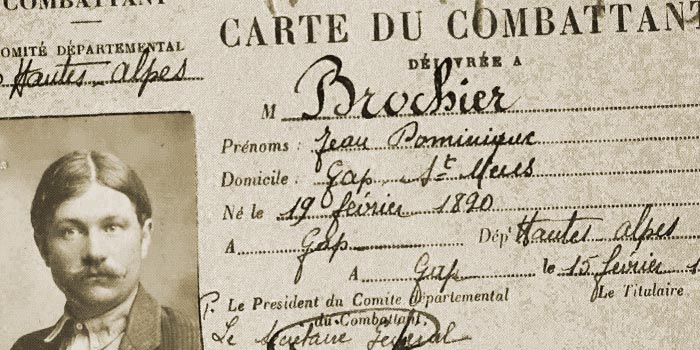 COMBATTANT
CARTE DU COMBATTANT
COMITÉ DÉPARTEMENTAL
Hautes-Alpes
DÉLIVRÉE A
M Brochier
Prénoms : Jean Dominique
Domicile : Gap St
Né le 19 février 1890
A Gap Dépt Hautes Alpes
A Gap le 15 février 1
P. Le Président du Comité Départemental
Le Titulaire
du Combattant,
Le Secrétaire Général